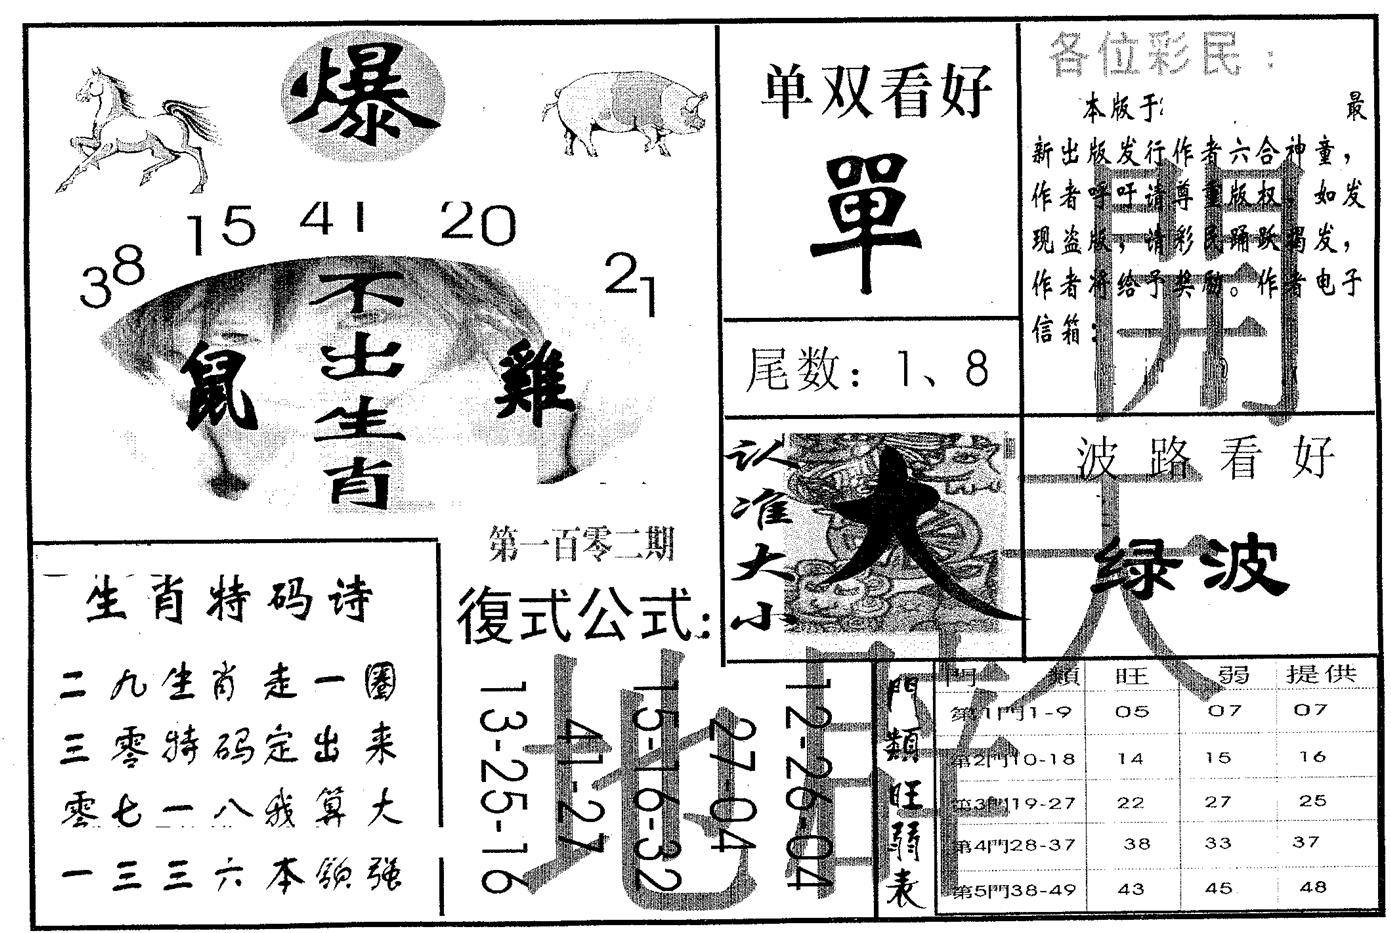 爆
38 15 41 20 21
不出生肖
鼠 雞
单双看好
單
尾数：1、8
各位彩民：
本版于 最
新出版发行作者六合神童，
作者呼吁请尊重版权，如发
现盗版，请彩民踊跃揭发，
作者将给予奖励。作者电子
信箱：
開
认准大小
大
波路看好
绿波
天
生肖特码诗
二九生肖走一圈
三零特码定出来
零七一八我算大
一三三六本领强
第一百零二期
復式公式：
13-25-16
41-27
15-16-32
27-04
12-26-04
地
門類旺弱表
門 類 旺 弱 提供
第1門1-9 05 07 07
第2門10-18 14 15 16
第3門19-27 22 27 25
第4門28-37 38 33 37
第5門38-49 43 45 48